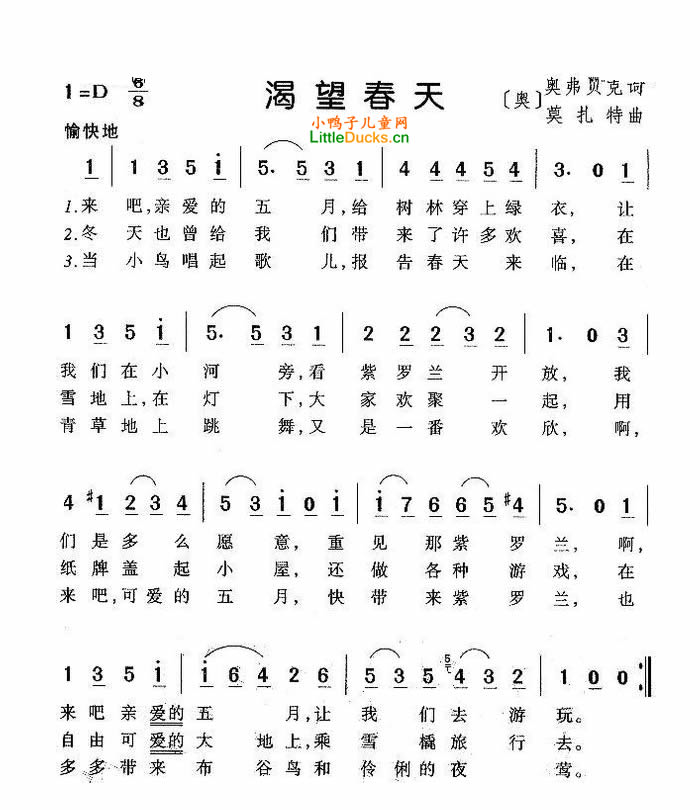 1=D 6/8 渴望春天 〔奥〕奥弗贝克词
莫扎特曲
小鸭子儿童网
愉快地
LittleDucks.cn
1 | 1 3 5 i | 5. 5 3 1 | 4 4 4 5 4 | 3. 0 1 |
1.来 吧,亲爱的 五 月,给 树林穿上绿 衣,让
2.冬 天也曾给 我 们带 来了许多欢 喜,在
3.当 小鸟唱起 歌 儿,报 告春天 来 临,在
1 3 5 i | 5. 5 3 1 | 2 2 2 3 2 | 1. 0 3 |
我们在小 河 旁,看 紫罗兰 开 放,我
雪地上,在 灯 下,大 家欢聚 一 起,用
青草地上 跳 舞,又 是一番 欢 欣,啊,
4 #1 2 3 4 | 5 3 i 0 i | i 7 6 6 5 #4 | 5. 0 1 |
们是多 么 愿 意,重 见 那紫 罗 兰,啊,
纸牌盖 起 小 屋,还 做 各种 游 戏,在
来吧,可爱的 五 月,快 带 来紫 罗 兰,也
1 3 5 i | i 6 4 2 6 | 5 3 5 5 4 3 2 | 1 0 0 :||
来吧亲爱的 五 月,让 我 们去 游 玩。
自由可爱的大 地上,乘 雪 橇旅 行 去。
多多带来 布 谷鸟和 伶 俐的 夜 莺。